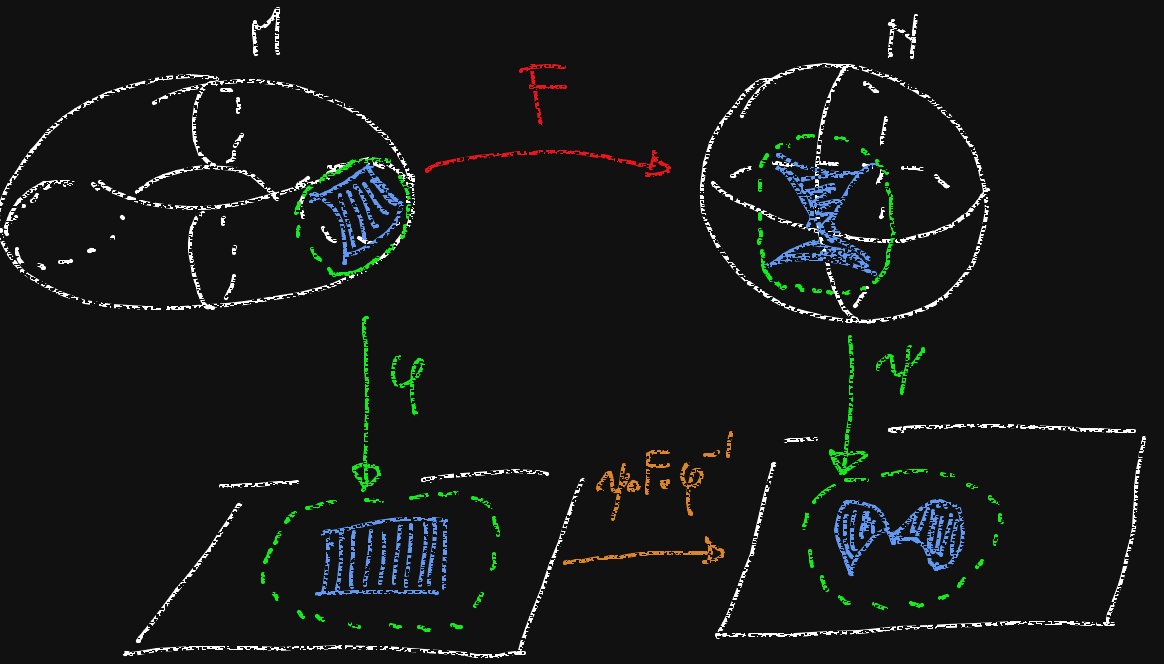 M
N
F
φ
ψ
ψ∘F∘φ⁻¹